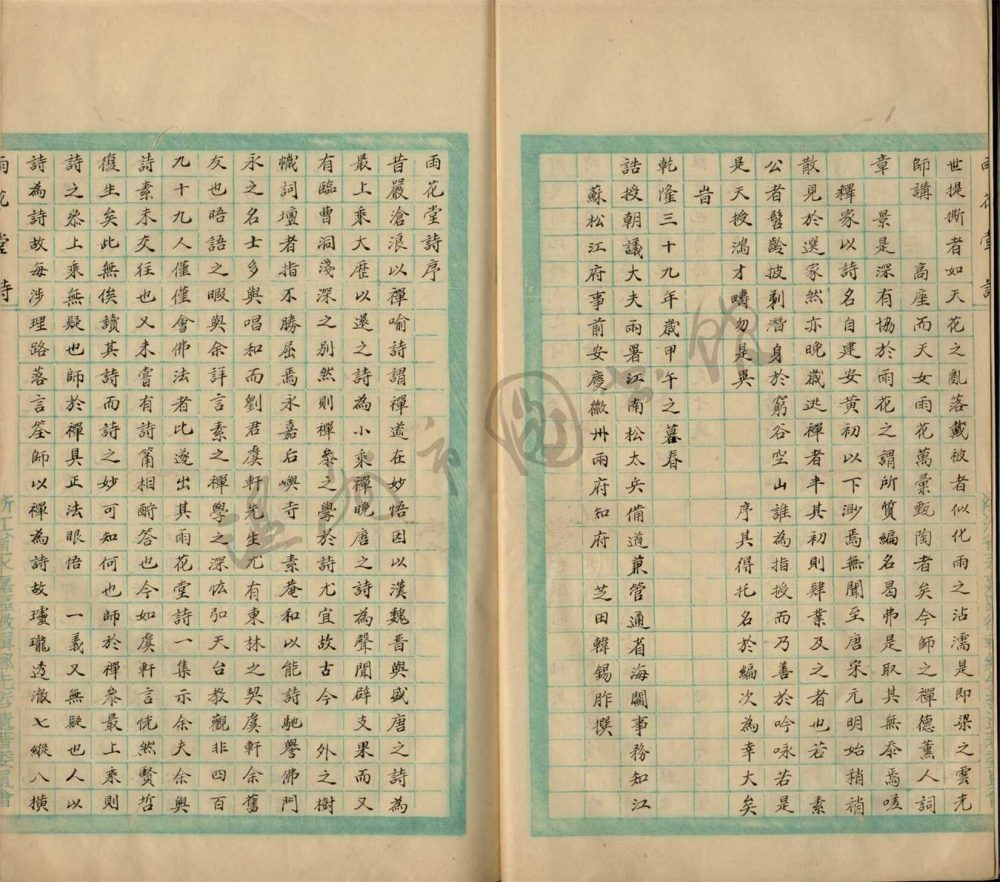 世提撕者如天花之亂落戴被者似化雨之沾濡是即梁之雲光
師講 高座而天女雨花萬彙甄陶者矣今師之禪德薰人詞
章 景是深有協於雨花之謂所質編名曷弗是取其無忝焉嗟
釋家以詩名自建安黃初以下渺焉無聞至唐宋元明始稍稍
散見於選家然亦晚歲逃禪者半其初則肆業及之者也若 素
公者髫齡披剃潛身於窮谷空山誰為指授而乃善於吟咏若是
是天授鴻才疇勿是與 序其得托名於編次為幸大矣
旹
乾隆三十九年歲甲午之暮春
誥授朝議大夫雨署江南松太兵備道兼管通省海關事務知江
蘇松江府事前安慶徽州兩府知府 芝田韓錫胙撰
雨花堂詩序
昔嚴滄浪以禪喻詩謂禪道在妙悟因以漢魏晉與盛唐之詩為
最上乘大歷以還之詩為小乘禪晚唐之詩為聲聞辟支果而又
有臨曹洞淺深之別然則禪參之學於詩尤宜故古今 外之樹
幟詞壇者指不勝屈焉永嘉石嶼寺 素菴和以能詩馳譽佛門
永之名士多與唱和而劉君虞軒先生尤有東林之契虞軒余舊
友也晤語之暇與余詳言素之禪學之深恢弘天台教觀非四百
九十九人僅僅會佛法者比遂出其雨花堂詩一集示余夫余與
詩素未交往也又未嘗有詩筩相酧答也今如虞軒言恍然賢哲
復生矣此無俟讀其詩而詩之妙可知何也師於禪參最上乘則
詩之叅上乘無疑也師於禪具正法眼悟 一義又無疑也人以
詩為詩故每涉理路落言筌師以禪為詩故瓏瓏透澈七縱八橫
雨花堂詩